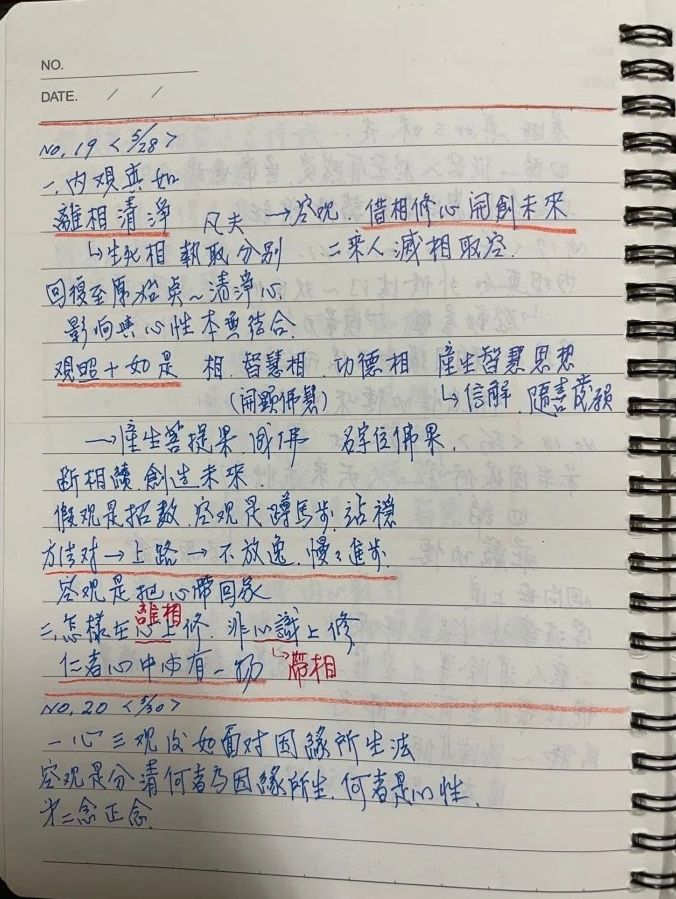 NO.
DATE. / /
NO. 19 <5/28>
一、内观真如
離相清淨 凡夫 → 空观. 借相修心 開創未來
↳生死相 執取分别 二乘人 滅相取空.
回復至原始点~清淨心.
影响與心性本要结合.
观照+如是 相. 智慧相. 功德相 產生智慧思想
(開顯佛慧) ↳信解. 隨喜發願
→產生菩提果. 成佛 名字位佛果.
断相續. 創造未來.
假观是招数. 空观是蹲馬步. 站稳
方法对→上路→不放逸. 慢々進步.
空观是把心帶回家
離相
二、怎樣在心上修. 非心識上修
仁者心中必有一物 ↳帶相
NO. 20 <5/30>
一心三观 如何面对因緣所生法
空观是分清何者為因緣所生. 何者是心性.
第二念正念.